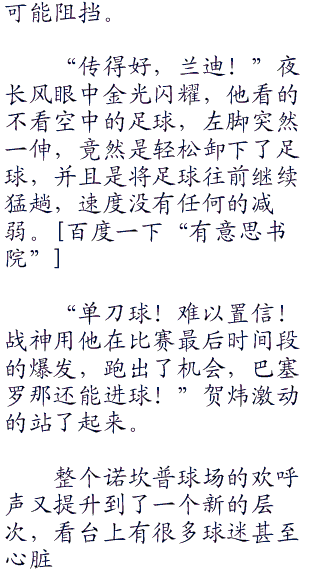 可能阻挡。
“传得好，兰迪！”夜
长风眼中金光闪耀，他看的
不看空中的足球，左脚突然
一伸，竟然是轻松卸下了足
球，并且是将足球往前继续
猛趟，速度没有任何的减
弱。[百度一下“有意思书
院”]
“单刀球！难以置信！
战神用他在比赛最后时间段
的爆发，跑出了机会，巴塞
罗那还能进球！”贺炜激动
的站了起来。
整个诺坎普球场的欢呼
声又提升到了一个新的层
次，看台上有很多球迷甚至
心脏